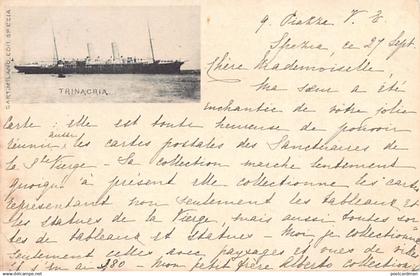 CARTI MILANO. EDIT. SPEZIA
TRINACRIA.
9. Piazza V. E
Spezia, ce 27 Sept.
Chère Mademoiselle,
Ma sœur a été
enchantée de votre jolie
carte; elle est toute heureuse de pouvoir
réunir aussi les cartes postales des Sanctuaires de
la Ste Vierge - Sa collection marche lentement
quoique à présent elle collectionne les cartes
représentant non seulement les tableaux et
les statues de la Vierge, mais aussi toutes sor-
tes de tableaux et statues - Moi je collectionne
seulement celles avec paysages et vues de
j'en ai 980 Mon petit frère Alberto collection